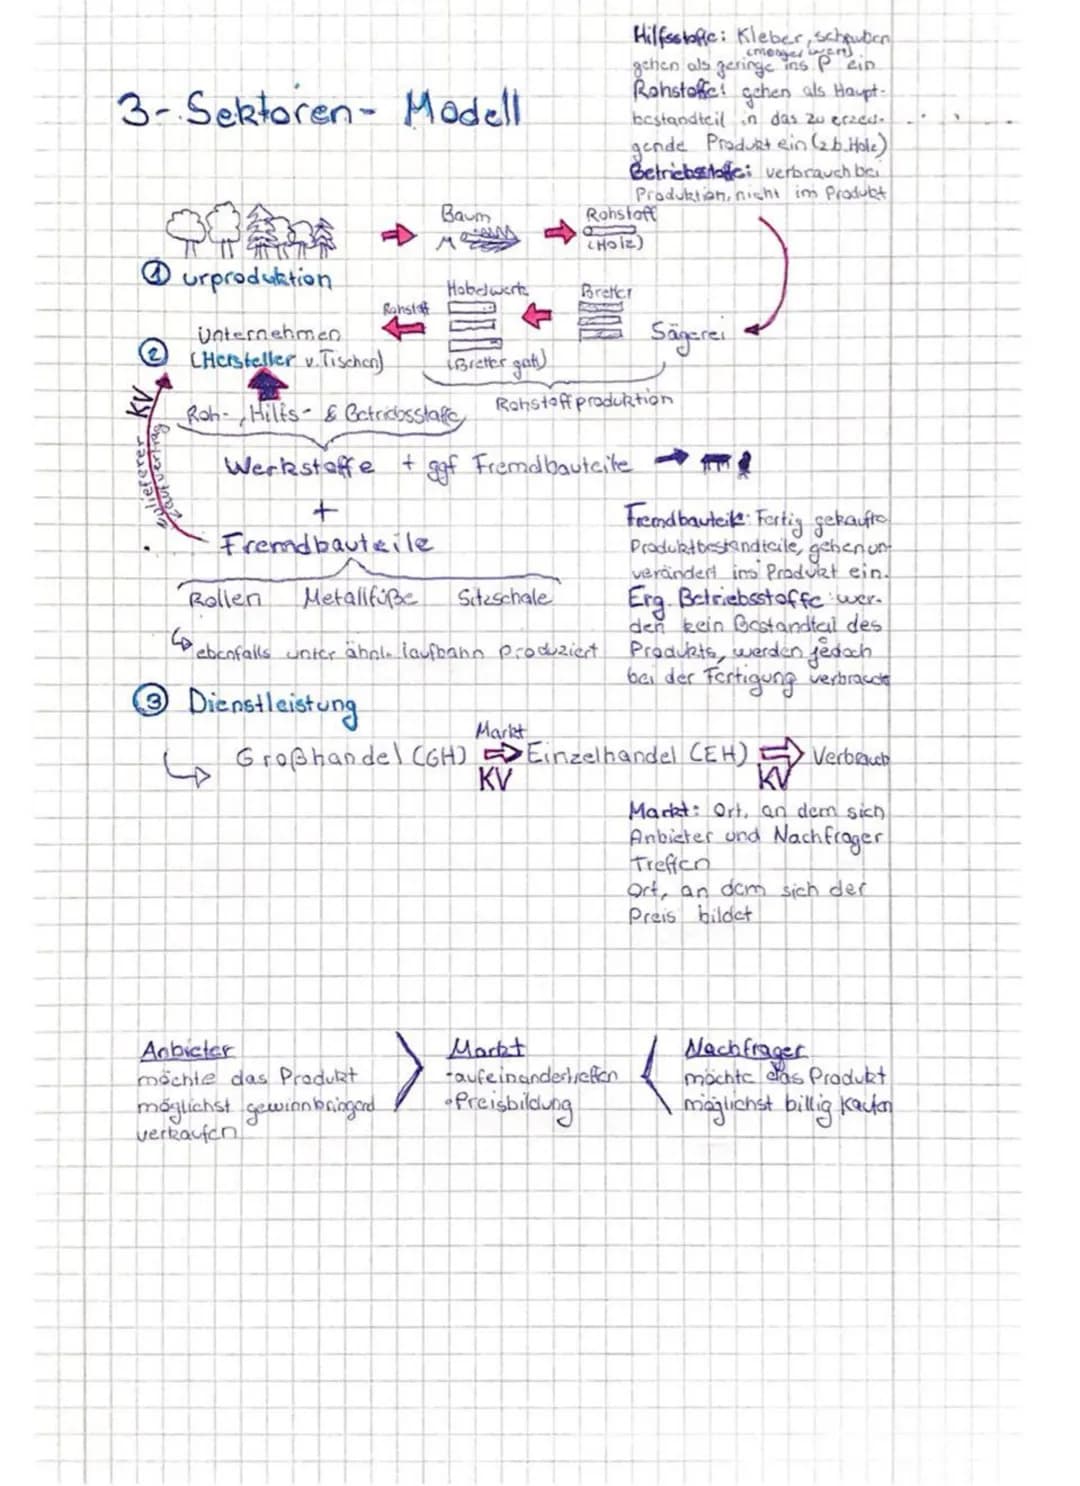 Hilfsstoffe: Kleber, schrauben
(menger wert)
gehen als geringe ins P ein
3-Sektoren-Modell
Rohstoffe: gehen als Haupt-
bestandteil in das zu erzeu-
gende Produkt ein (z.b. Holz)
Betriebstoffe: verbrauch bei
Produktion, nicht im Produkt
Baum
Rohstoff
(Holz)
① urproduktion
Hobelwerk
Bretter
Rohstoff
Sägerei
② Unternehmen
(Hersteller v. Tischen)
(Bretter gatt)
Rohstoffproduktion
KV
Zulieferer
Kaufvertrag
Roh-, Hilfs- & Betriebsstoffe
Werkstoffe + ggf Fremdbauteile
+
Fremdbauteile
Rollen Metallfüße Sitzschale
↳ ebenfalls unter ähnl. laufbahn produziert
Fremdbauteile: Fertig gekaufte
Produktbestandteile, gehen un-
verändert ins Produkt ein.
Erg. Betriebsstoffe wer-
den kein Bestandteil des
Produkts, werden jedoch
bei der Fertigung verbraucht
③ Dienstleistung
Markt
↳ Großhandel (GH) ⇒ Einzelhandel (EH) ⇒ Verbrauch
KV KV
Markt: Ort, an dem sich
Anbieter und Nachfrager
Treffen
Ort, an dem sich der
Preis bildet
Anbieter
möchte das Produkt
möglichst gewinnbringend
verkaufen
Markt
-aufeinandertreffen
•Preisbildung
Nachfrager
möchte das Produkt
möglichst billig kaufen